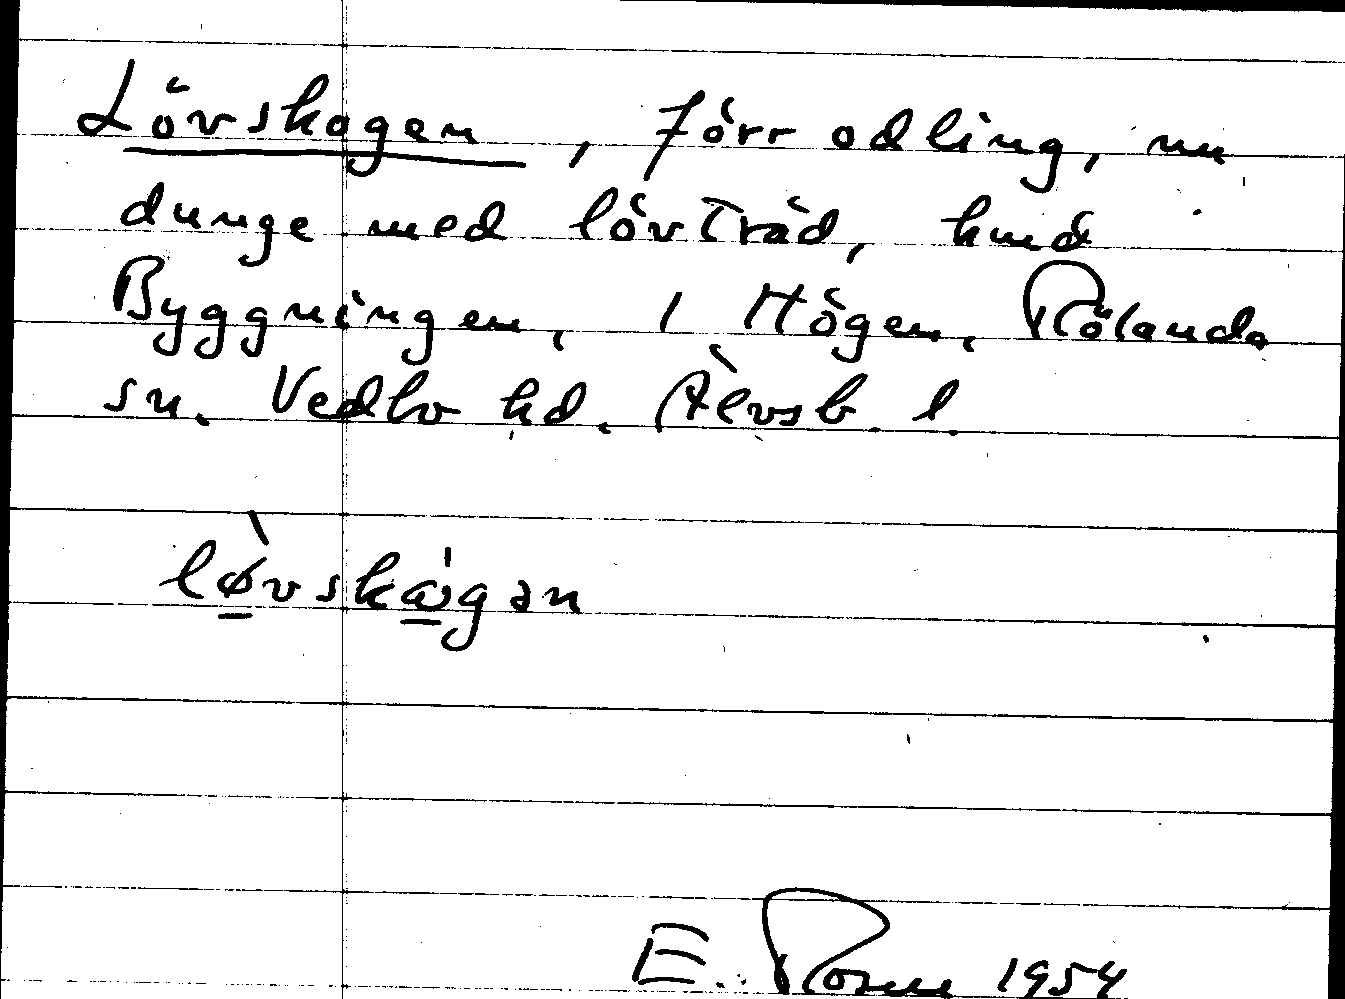 Lövskogen, förr odling, nu
dunge med lövträd, hmd
Byggningen, i Högen, Rölanda
sn. Vedbo hd. Älvsb. l.
løvskωgən
E. Rosell 1954